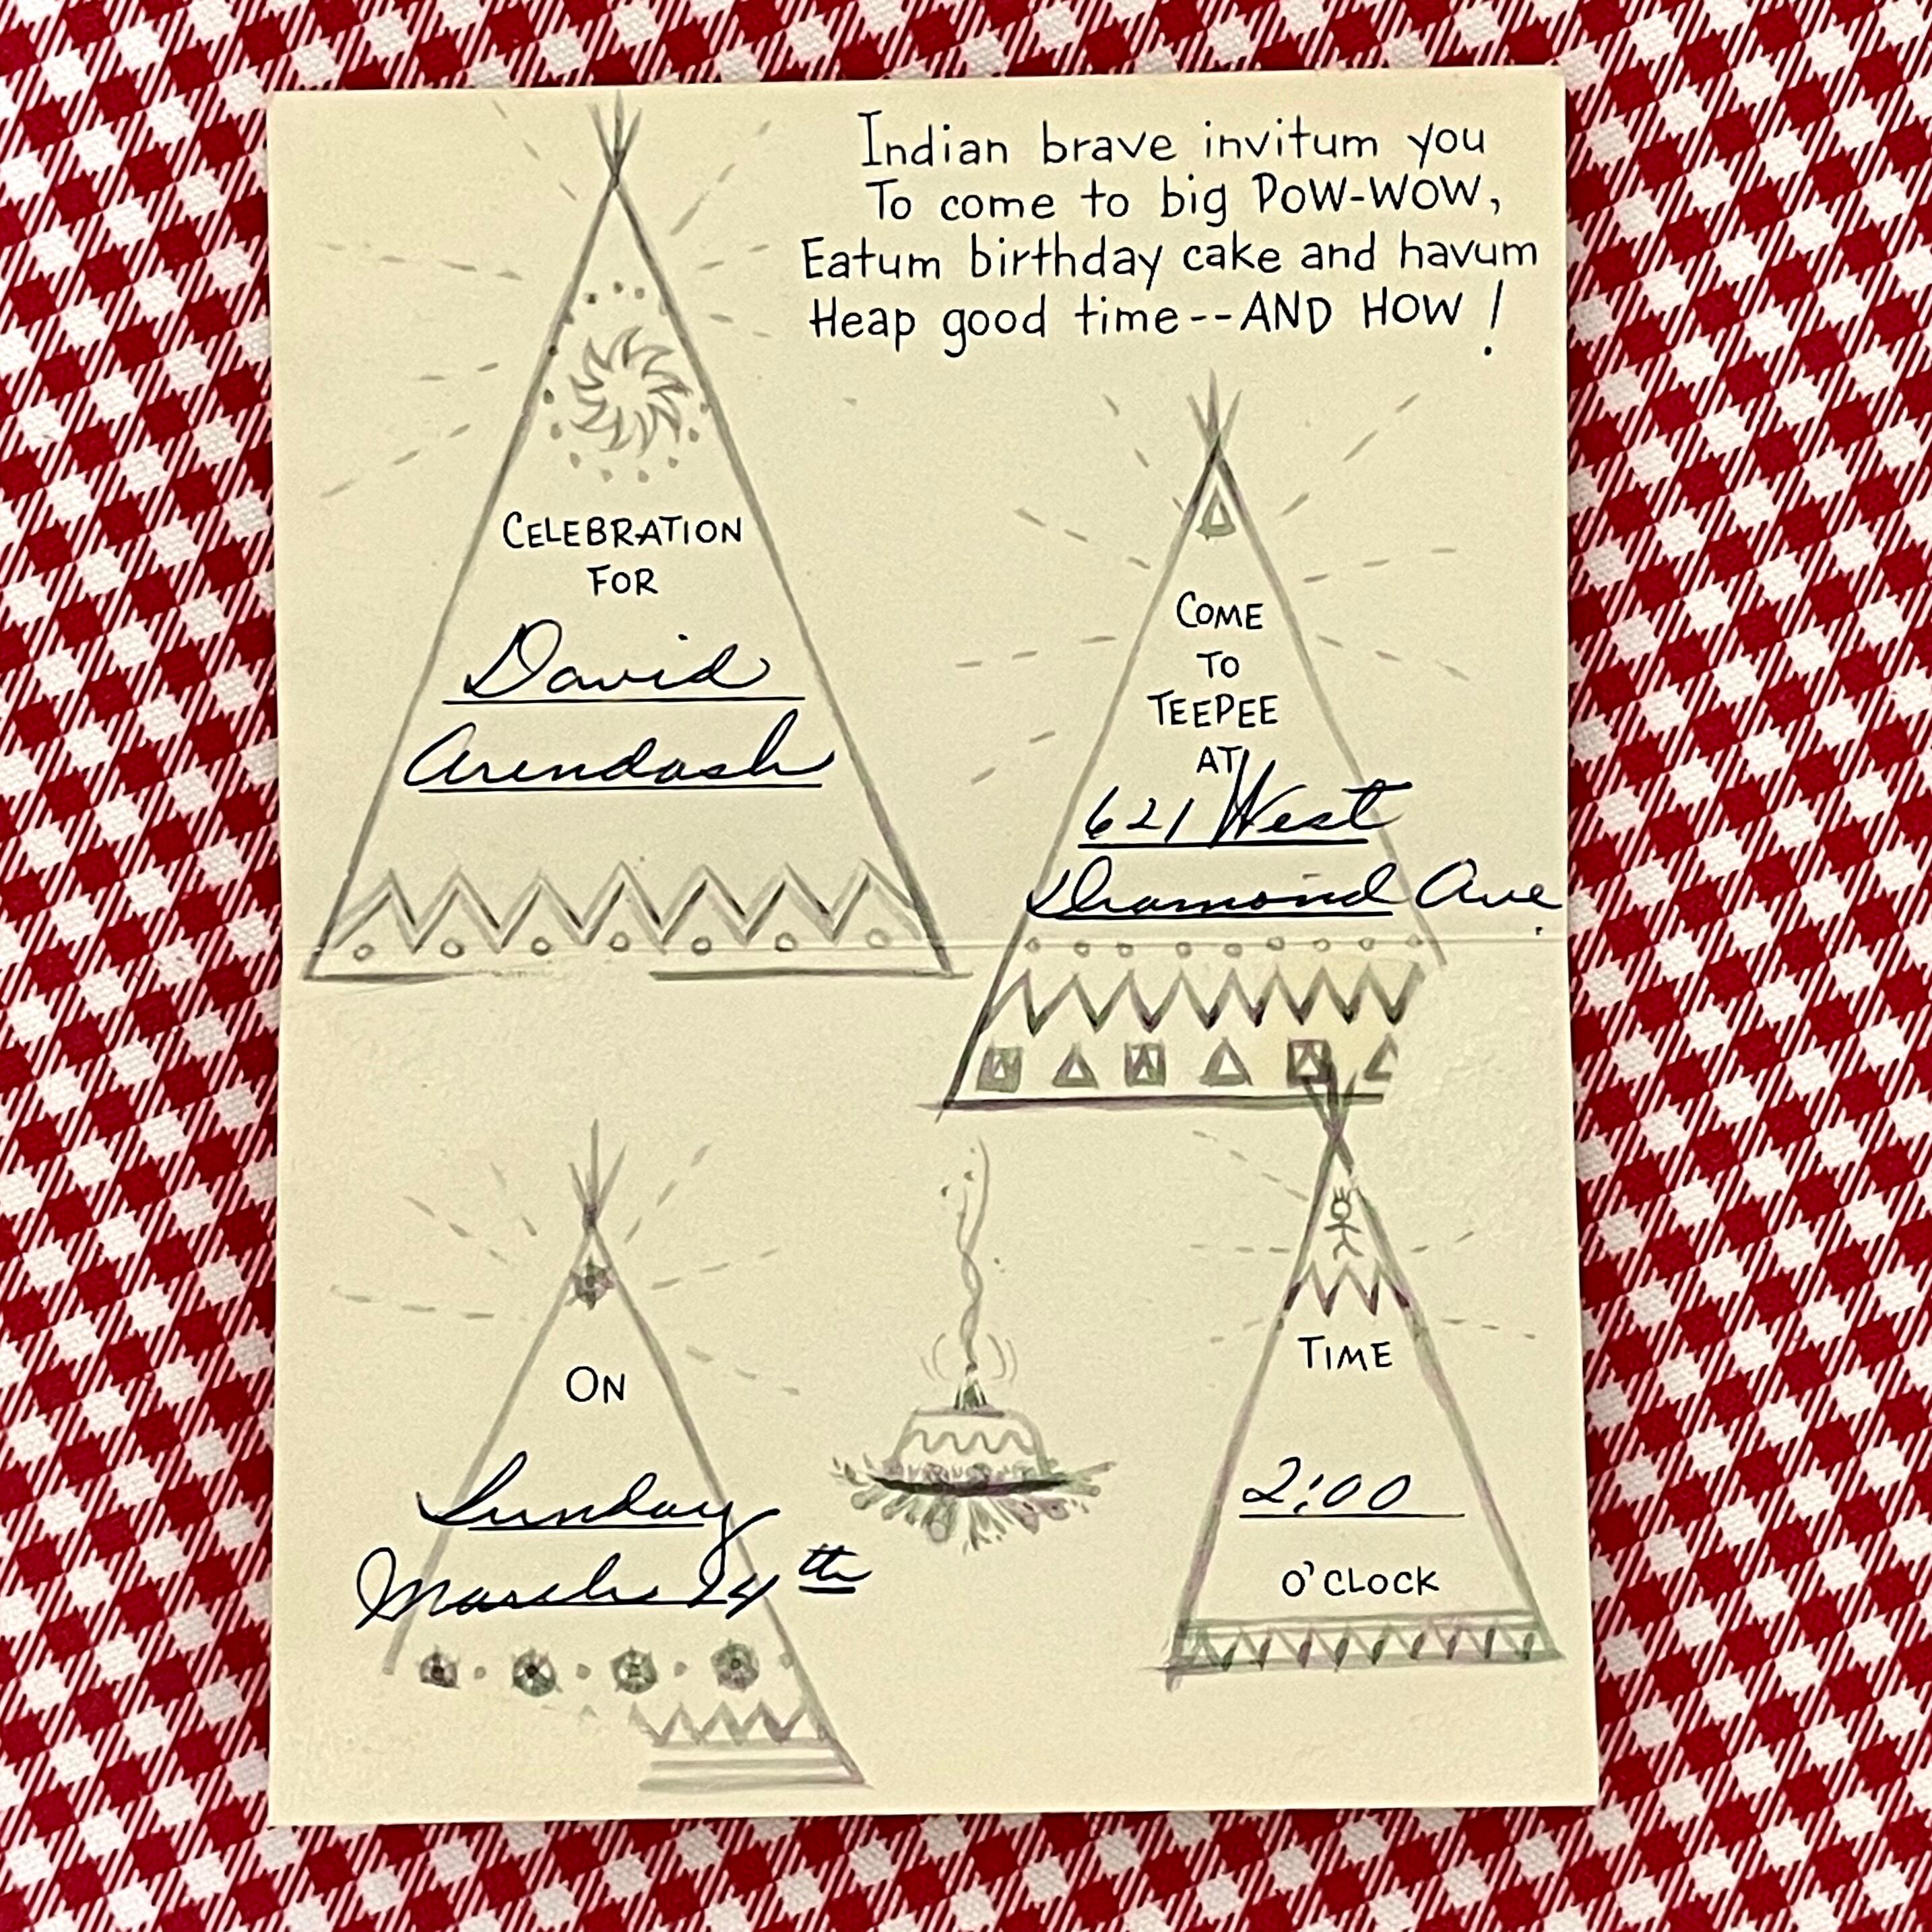 Indian brave invitum you
To come to big POW-WOW,
Eatum birthday cake and havum
Heap good time--AND HOW!
CELEBRATION
FOR
David
Arendash
COME
TO
TEEPEE
AT
621 West
Diamond Ave.
ON
Sunday
March 24th
TIME
2:00
O'CLOCK